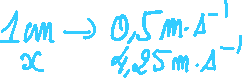 1 cm → 0,5 m·s⁻¹
x 4,25 m·s⁻¹